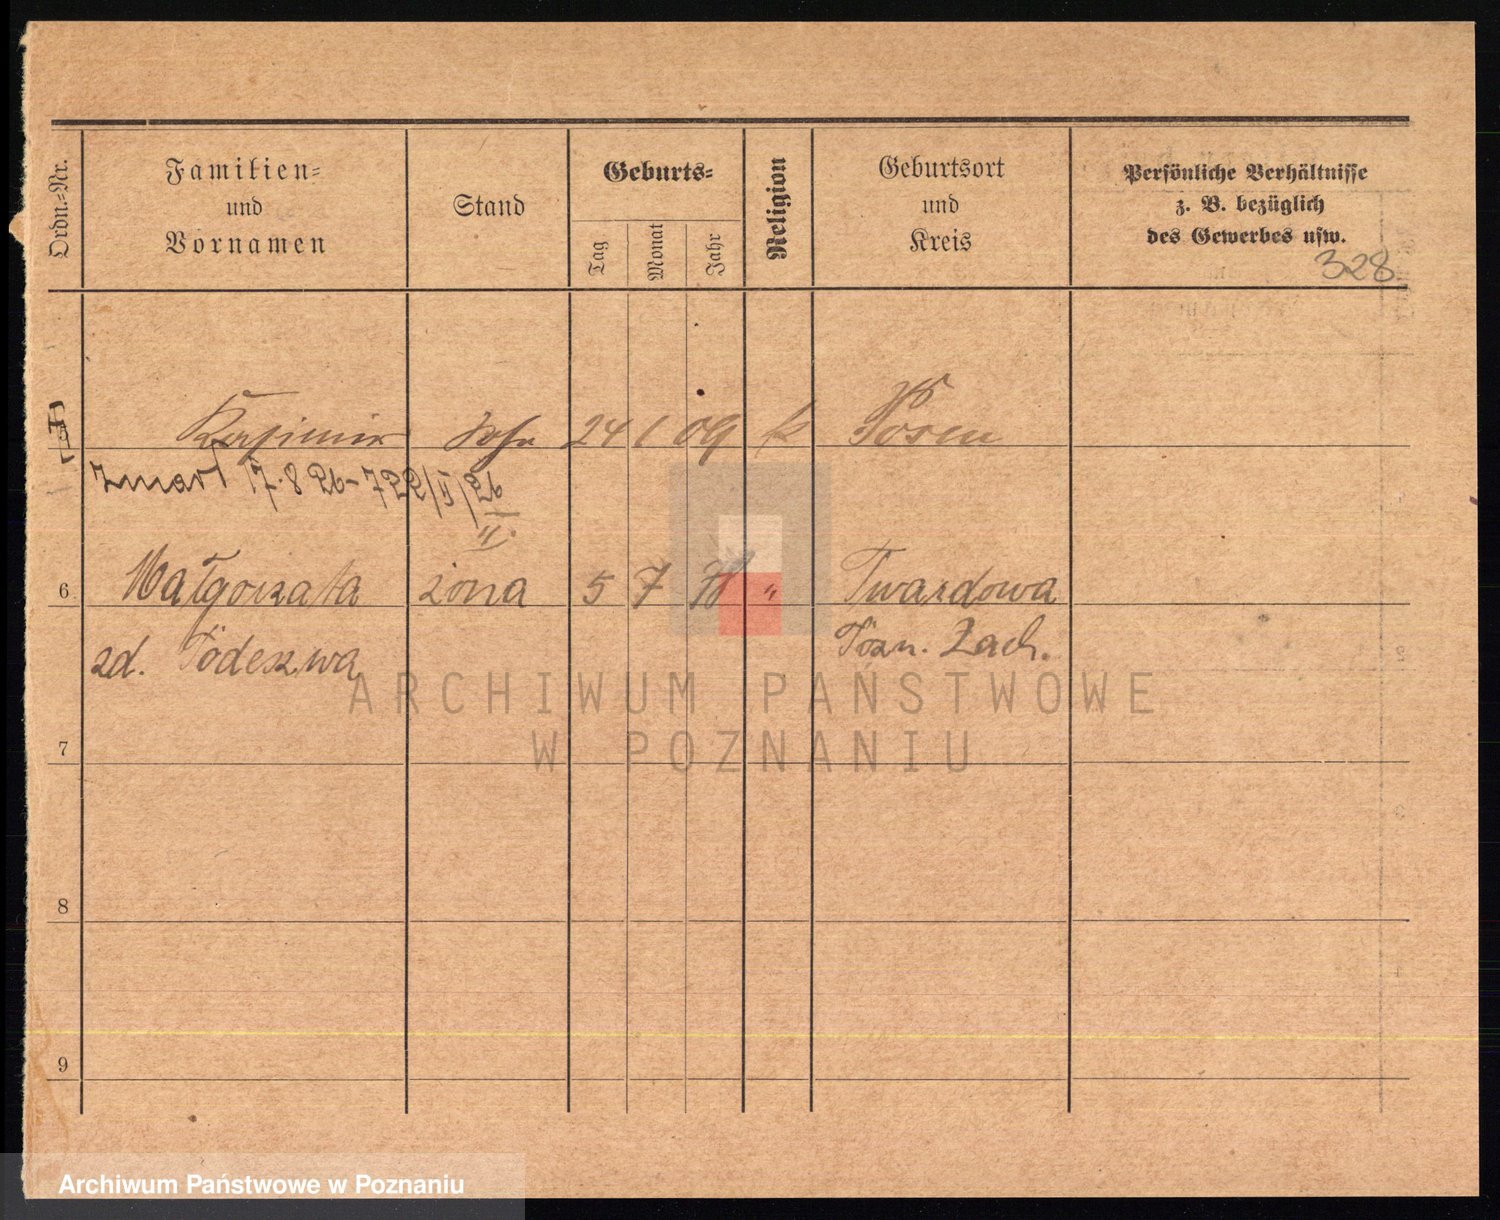 Ordn.=Nr.
Familien=
und
Vornamen
Stand
Geburts=
Tag
Monat
Jahr
Religion
Geburtsort
und
Kreis
Persönliche Verhältnisse
z. B. bezüglich
des Gewerbes usw.
328
Kasimir Sohn 24 1 09 k Posen
zmarł 17.8 26-722/II/26
II.
6 Małgorzata żona 5 7 "  Twardowa
zd. Pozn. Zach.
7
8
9
ARCHIWUM PAŃSTWOWE
W POZNANIU
Archiwum Państwowe w Poznaniu